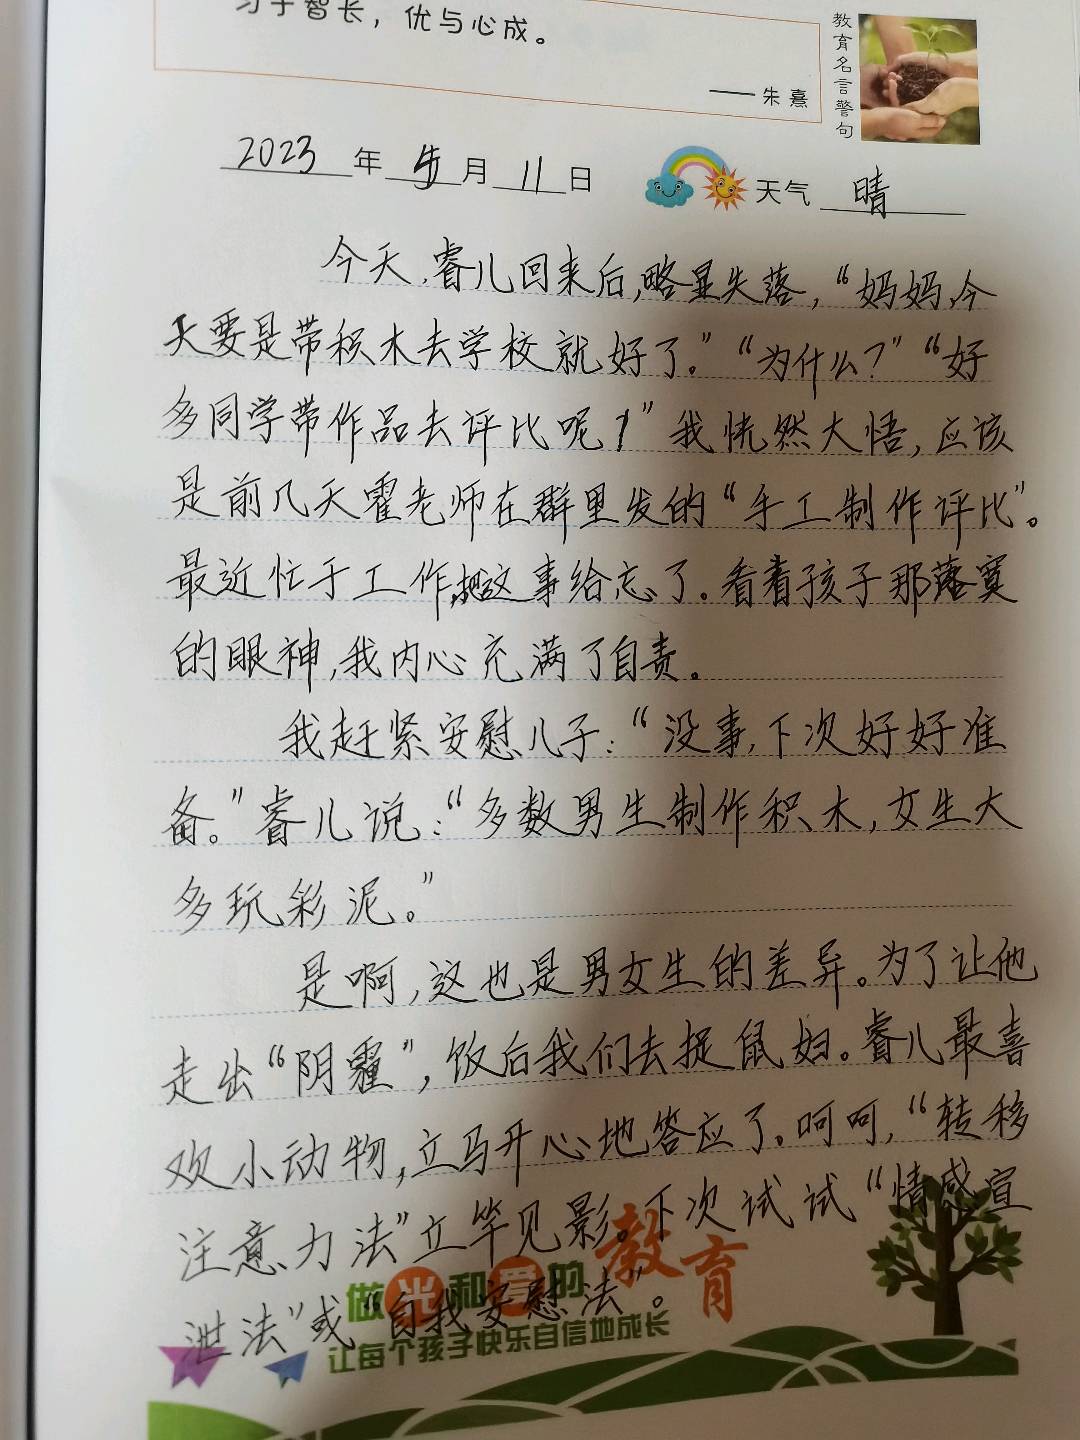 习于智长，优与心成。
——朱熹
教育名言警句
2023年 5月 11日 天气 晴
今天，睿儿回来后，略显失落，“妈妈，今
天要是带积木去学校就好了。”“为什么？”“好
多同学带作品去评比呢！”我恍然大悟，应该
是前几天霍老师在群里发的“手工制作评比”。
最近忙于工作，把这事给忘了。看着孩子那落寞
的眼神，我内心充满了自责。
我赶紧安慰儿子：“没事，下次好好准
备。”睿儿说：“多数男生制作积木，女生大
多玩彩泥。”
是啊，这也是男女生的差异。为了让他
走出“阴霾”，饭后我们去捉鼠妇。睿儿最喜
欢小动物，立马开心地答应了。呵呵，“转移
注意力法”立竿见影。下次试试“情感宣
泄法”或“自我安慰法”。
做光和爱的教育
让每个孩子快乐自信地成长